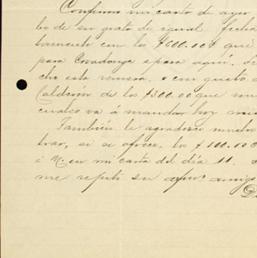 Confirmo mi carta de ayer
bo de su grata de igual fecha
tamente con los $600.00 que
para Covadonga espara aqui,
che esta remesa, o con gusto
Calderon de los $300.00 que
cuales va á mandar hoy
Tambien le agradezco mucho
trar, si se ofrece, los $100.00
á V. en mi carta del dia 11.
me repito su afmo amigo